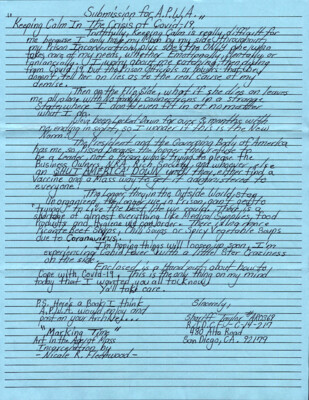 "Submission for A.P.W.A."
Keeping Calm In The Crisis of Covid 19.
Truthfully, Keeping Calm is really difficult for
me because I only have my Mom by my side throughout
my Prison Incarceration, plus she's the ONLY one who
takes care of my needs, whether Emotionally, Mentally or
Financially. I worry about me catching then dying
from Covid 19 but the Prison officials or
doesn't tell her the lies as to the real Cause of my
demise.
Then on the Flip side, what if she dies on leaves
me all alone with no family connections in a Strange
State where I don't even fit in at no matter
what I do.
We've been Locked Down for over 8 months with
no ending in sight, so I wonder if this is the New
Norm?
The President and the Governing Body of America
has me so because the President is suppose to
be a Leader, not a Person who's trying to please the
Business Owners, AKA Rich Society and whoever else
SHUT AMERICA DOWN until they either find a
Vaccine and a Mass way to it to
everyone!
The Longer they in the Outside World stay
Unorganized, the Longer we in Prison, can't get to
"trying" to Live the best life we could. There is a
shortage of almost everything like Medical Supplies, Food
Products and Hygiene we can order. There is no more
Chili Soups or Spicy Vegetable Soups
due to Coronavirus.
I'm hoping things will open up soon. I'm
experiencing Cabin Fever with a little Stir Craziness
on the side.
Enclosed is a Hand out about how to
Cope with Covid-19. This is the only thing on my mind
today that I wanted you all to know!
Y'all take care.
P.S. Here's a Book I think
A.P.W.A. would enjoy and
put on your Archives...
"Marking Time"
Art in the Age of Mass
Incarceration by
- Nicole R. Fleetwood -
Sincerely,
R.J.D.C.F. C-14-217
480 Alta Road
San Diego, CA. 92179